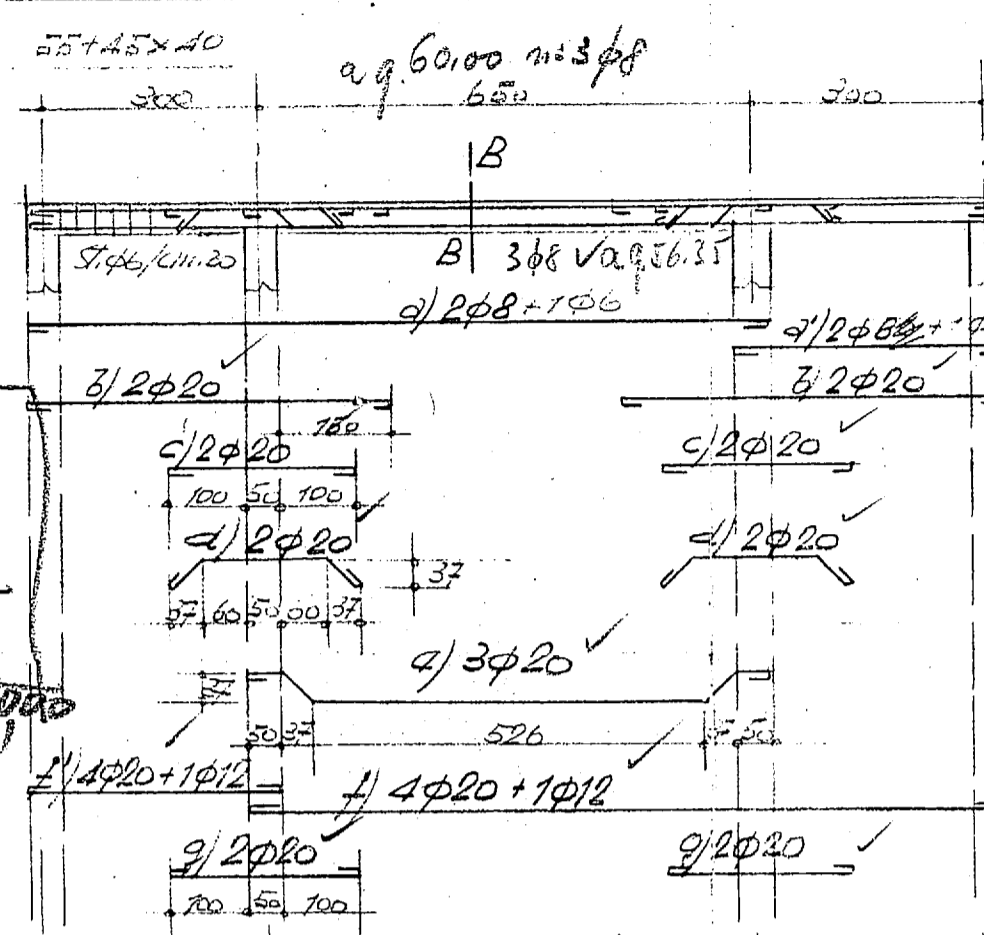 55+45×40
a q. 60,00 n: 3ϕ8
300 650 300
B
B 3ϕ8 √ a.q 56.35
St.ϕ6/cm.20
a) 2ϕ8+1ϕ6
a')
b) 2ϕ20
b) 2ϕ20
c) 2ϕ20
c) 2ϕ20
100 50 100
d) 2ϕ20
d) 2ϕ20
37
37 60 50 60 37
3ϕ20
50 37 526 50
f') 4ϕ20+1ϕ12
f) 4ϕ20+1ϕ12
g) 2ϕ20
g) 2ϕ20
100 50 100